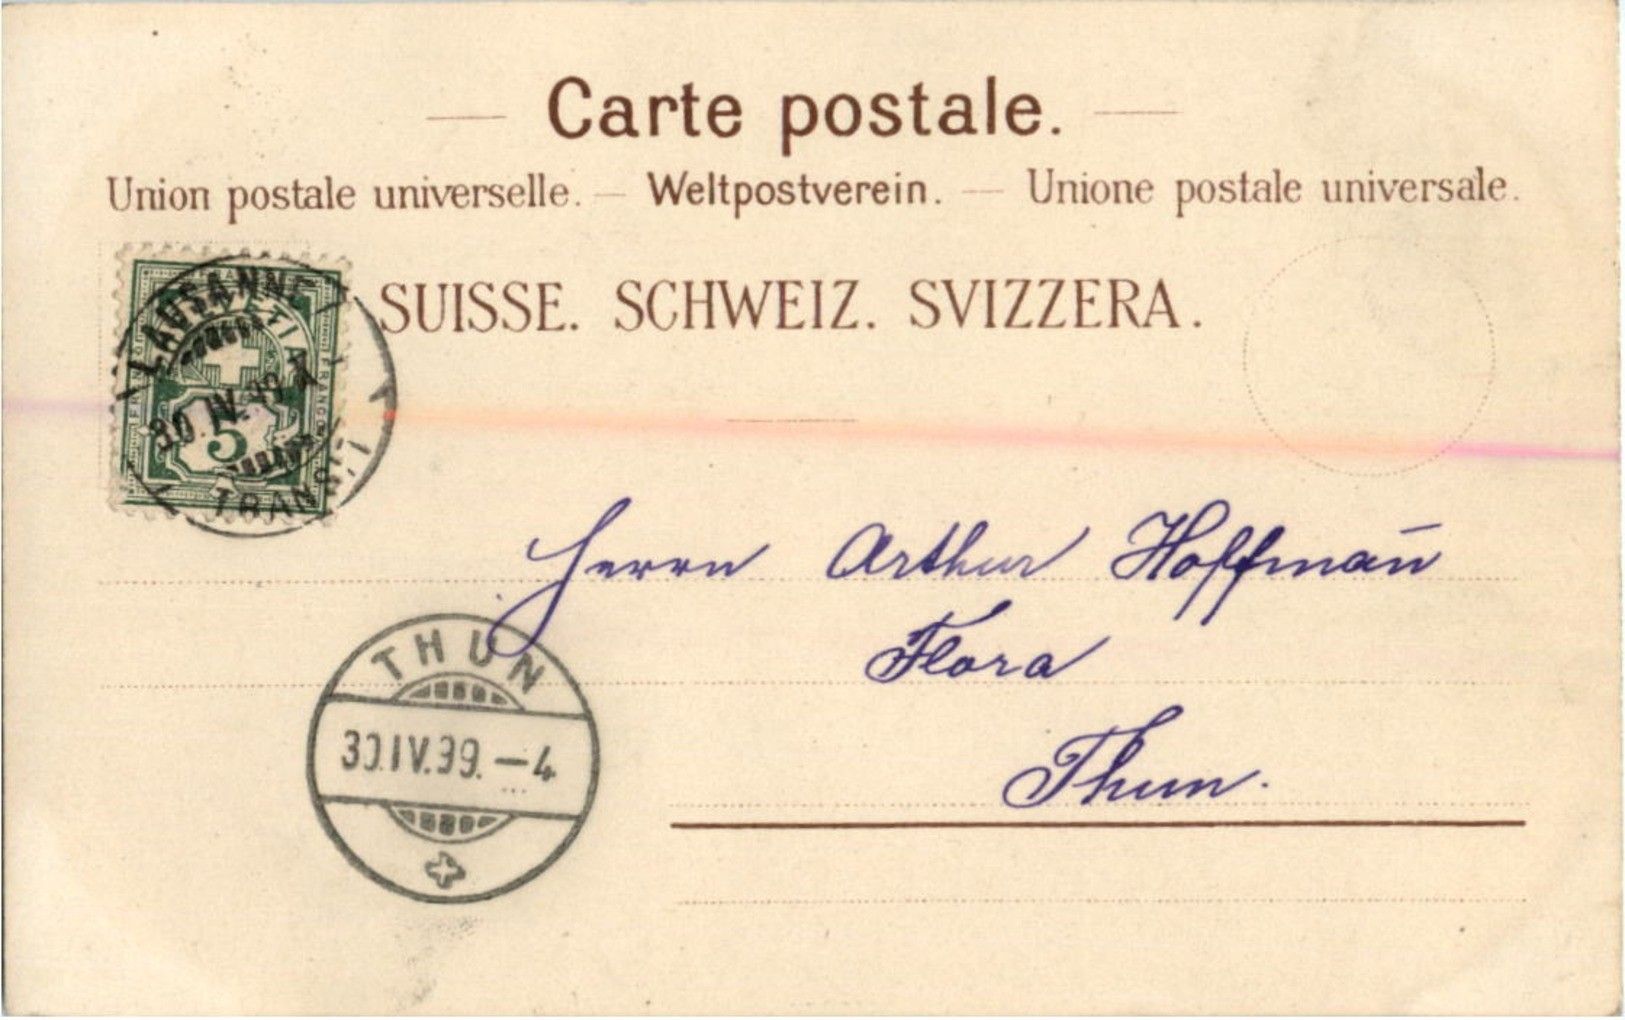 Carte postale.
Union postale universelle. — Weltpostverein. — Unione postale universale.
SUISSE. SCHWEIZ. SVIZZERA.
LAUSANNE
30.IV.99
TRANSIT
5
Herrn Arthur Hoffman̄
Flora
Thun.
THUN
30.IV.99.–4